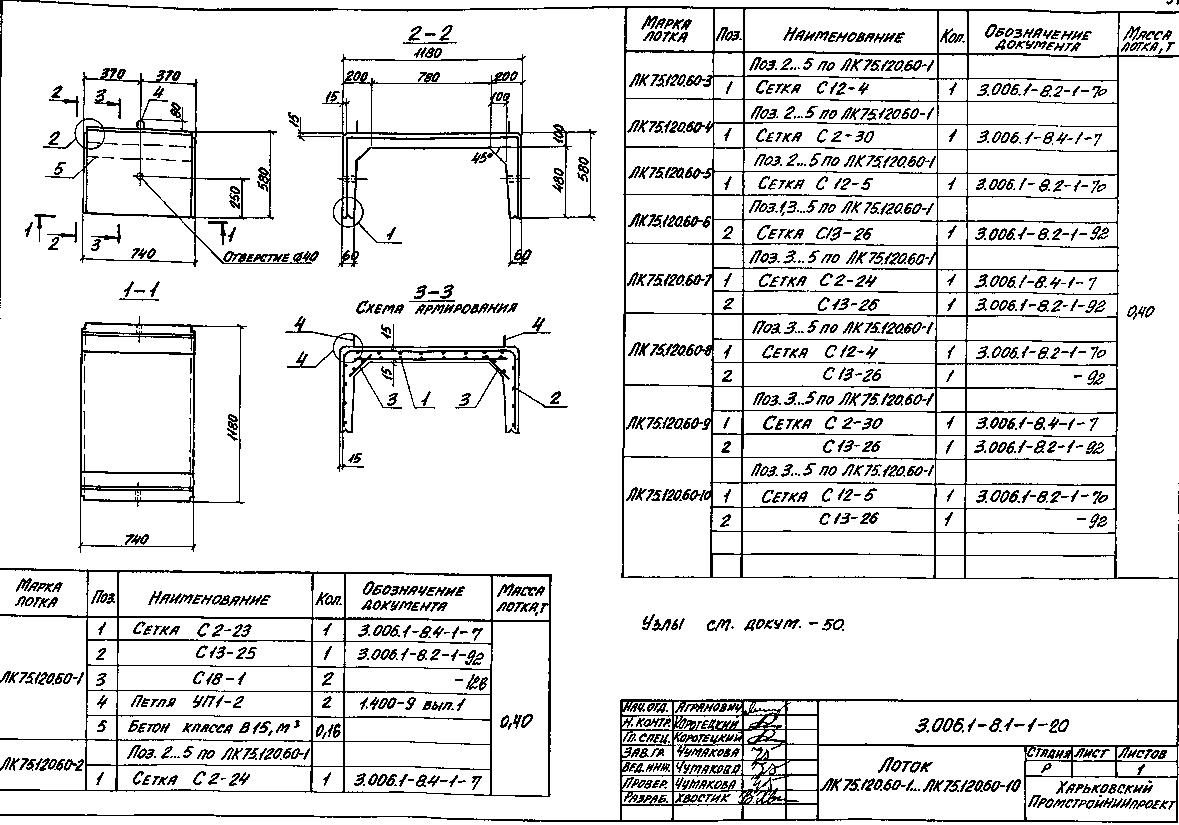 2-2
1180
370 370
200 780 200
100
15
15
2 3 4 80
2
5
580
250
100
480
580
45°
1 2 3 1
740
Отверстие Ø40
60 60
1
1-1
3-3
Схема армирования
4 15 4
4
15
3 1 3 2
15
1180
740
Марка лотка Поз. Наименование Кол. Обозначение документа Масса лотка,т
ЛК75.120.60-1 1 Сетка С2-23 1 3.006.1-8.4-1-7 0,40
2 С13-25 1 3.006.1-8.2-1-92
3 С18-1 2 -128
4 Петля УП1-2 2 1.400-9 вып.1
5 Бетон класса В15, м³ 0,16
ЛК75.120.60-2 Поз. 2...5 по ЛК75.120.60-1
1 Сетка С2-24 1 3.006.1-8.4-1-7
Марка лотка Поз. Наименование Кол. Обозначение документа Масса лотка,т
ЛК75.120.60-3 Поз. 2...5 по ЛК75.120.60-1
1 Сетка С12-4 1 3.006.1-8.2-1-70
ЛК75.120.60-4 Поз. 2...5 по ЛК75.120.60-1
1 Сетка С2-30 1 3.006.1-8.4-1-7
ЛК75.120.60-5 Поз. 2...5 по ЛК75.120.60-1
1 Сетка С12-5 1 3.006.1-8.2-1-70
ЛК75.120.60-6 Поз.1,3...5 по ЛК75.120.60-1
2 Сетка С13-26 1 3.006.1-8.2-1-92
ЛК75.120.60-7 Поз. 3...5 по ЛК75.120.60-1
1 Сетка С2-24 1 3.006.1-8.4-1-7
2 С13-26 1 3.006.1-8.2-1-92 0,40
ЛК75.120.60-8 Поз. 3...5 по ЛК75.120.60-1
1 Сетка С12-4 1 3.006.1-8.2-1-70
2 С13-26 1 -92
ЛК75.120.60-9 Поз. 3...5 по ЛК75.120.60-1
1 Сетка С2-30 1 3.006.1-8.4-1-7
2 С13-26 1 3.006.1-8.2-1-92
ЛК75.120.60-10 Поз. 3...5 по ЛК75.120.60-1
1 Сетка С12-5 1 3.006.1-8.2-1-70
2 С13-26 1 -92
Узлы см. докум. -50.
Нач.отд. Агранович
Н. контр. Коротецкий
Гл. спец. Коротецкий
Зав.гр. Чумакова
Вед.инж. Чумакова
Провер. Чумакова
Разраб. Хвостик
3.006.1-8.1-1-20
Лоток
ЛК75.120.60-1...ЛК75.120.60-10
Стадия Лист Листов
Р 1
Харьковский
Промстройниипроект